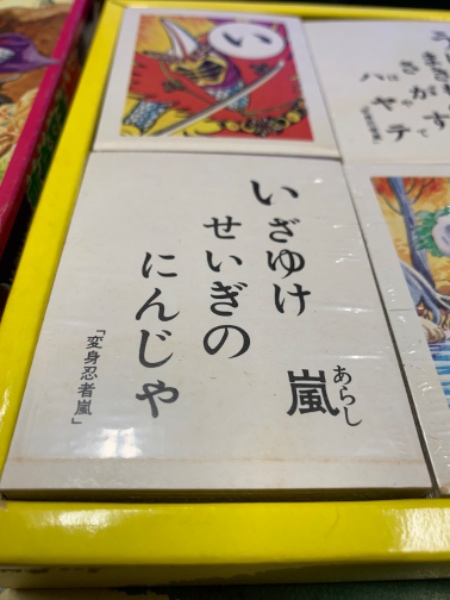 い
いざゆけ
嵐
あらし
せいぎの
にんじゃ
「変身忍者嵐」
さがす
ハヤテ